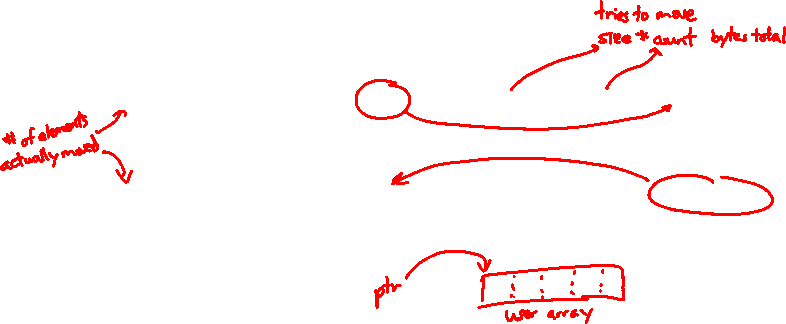 tries to move
size * count bytes total
# of elements
actually moved
ptr
user array